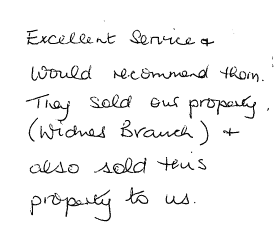 Excellent Service &
Would recommend them.
They sold our property.
(Widnes Branch) +
also sold this
property to us.